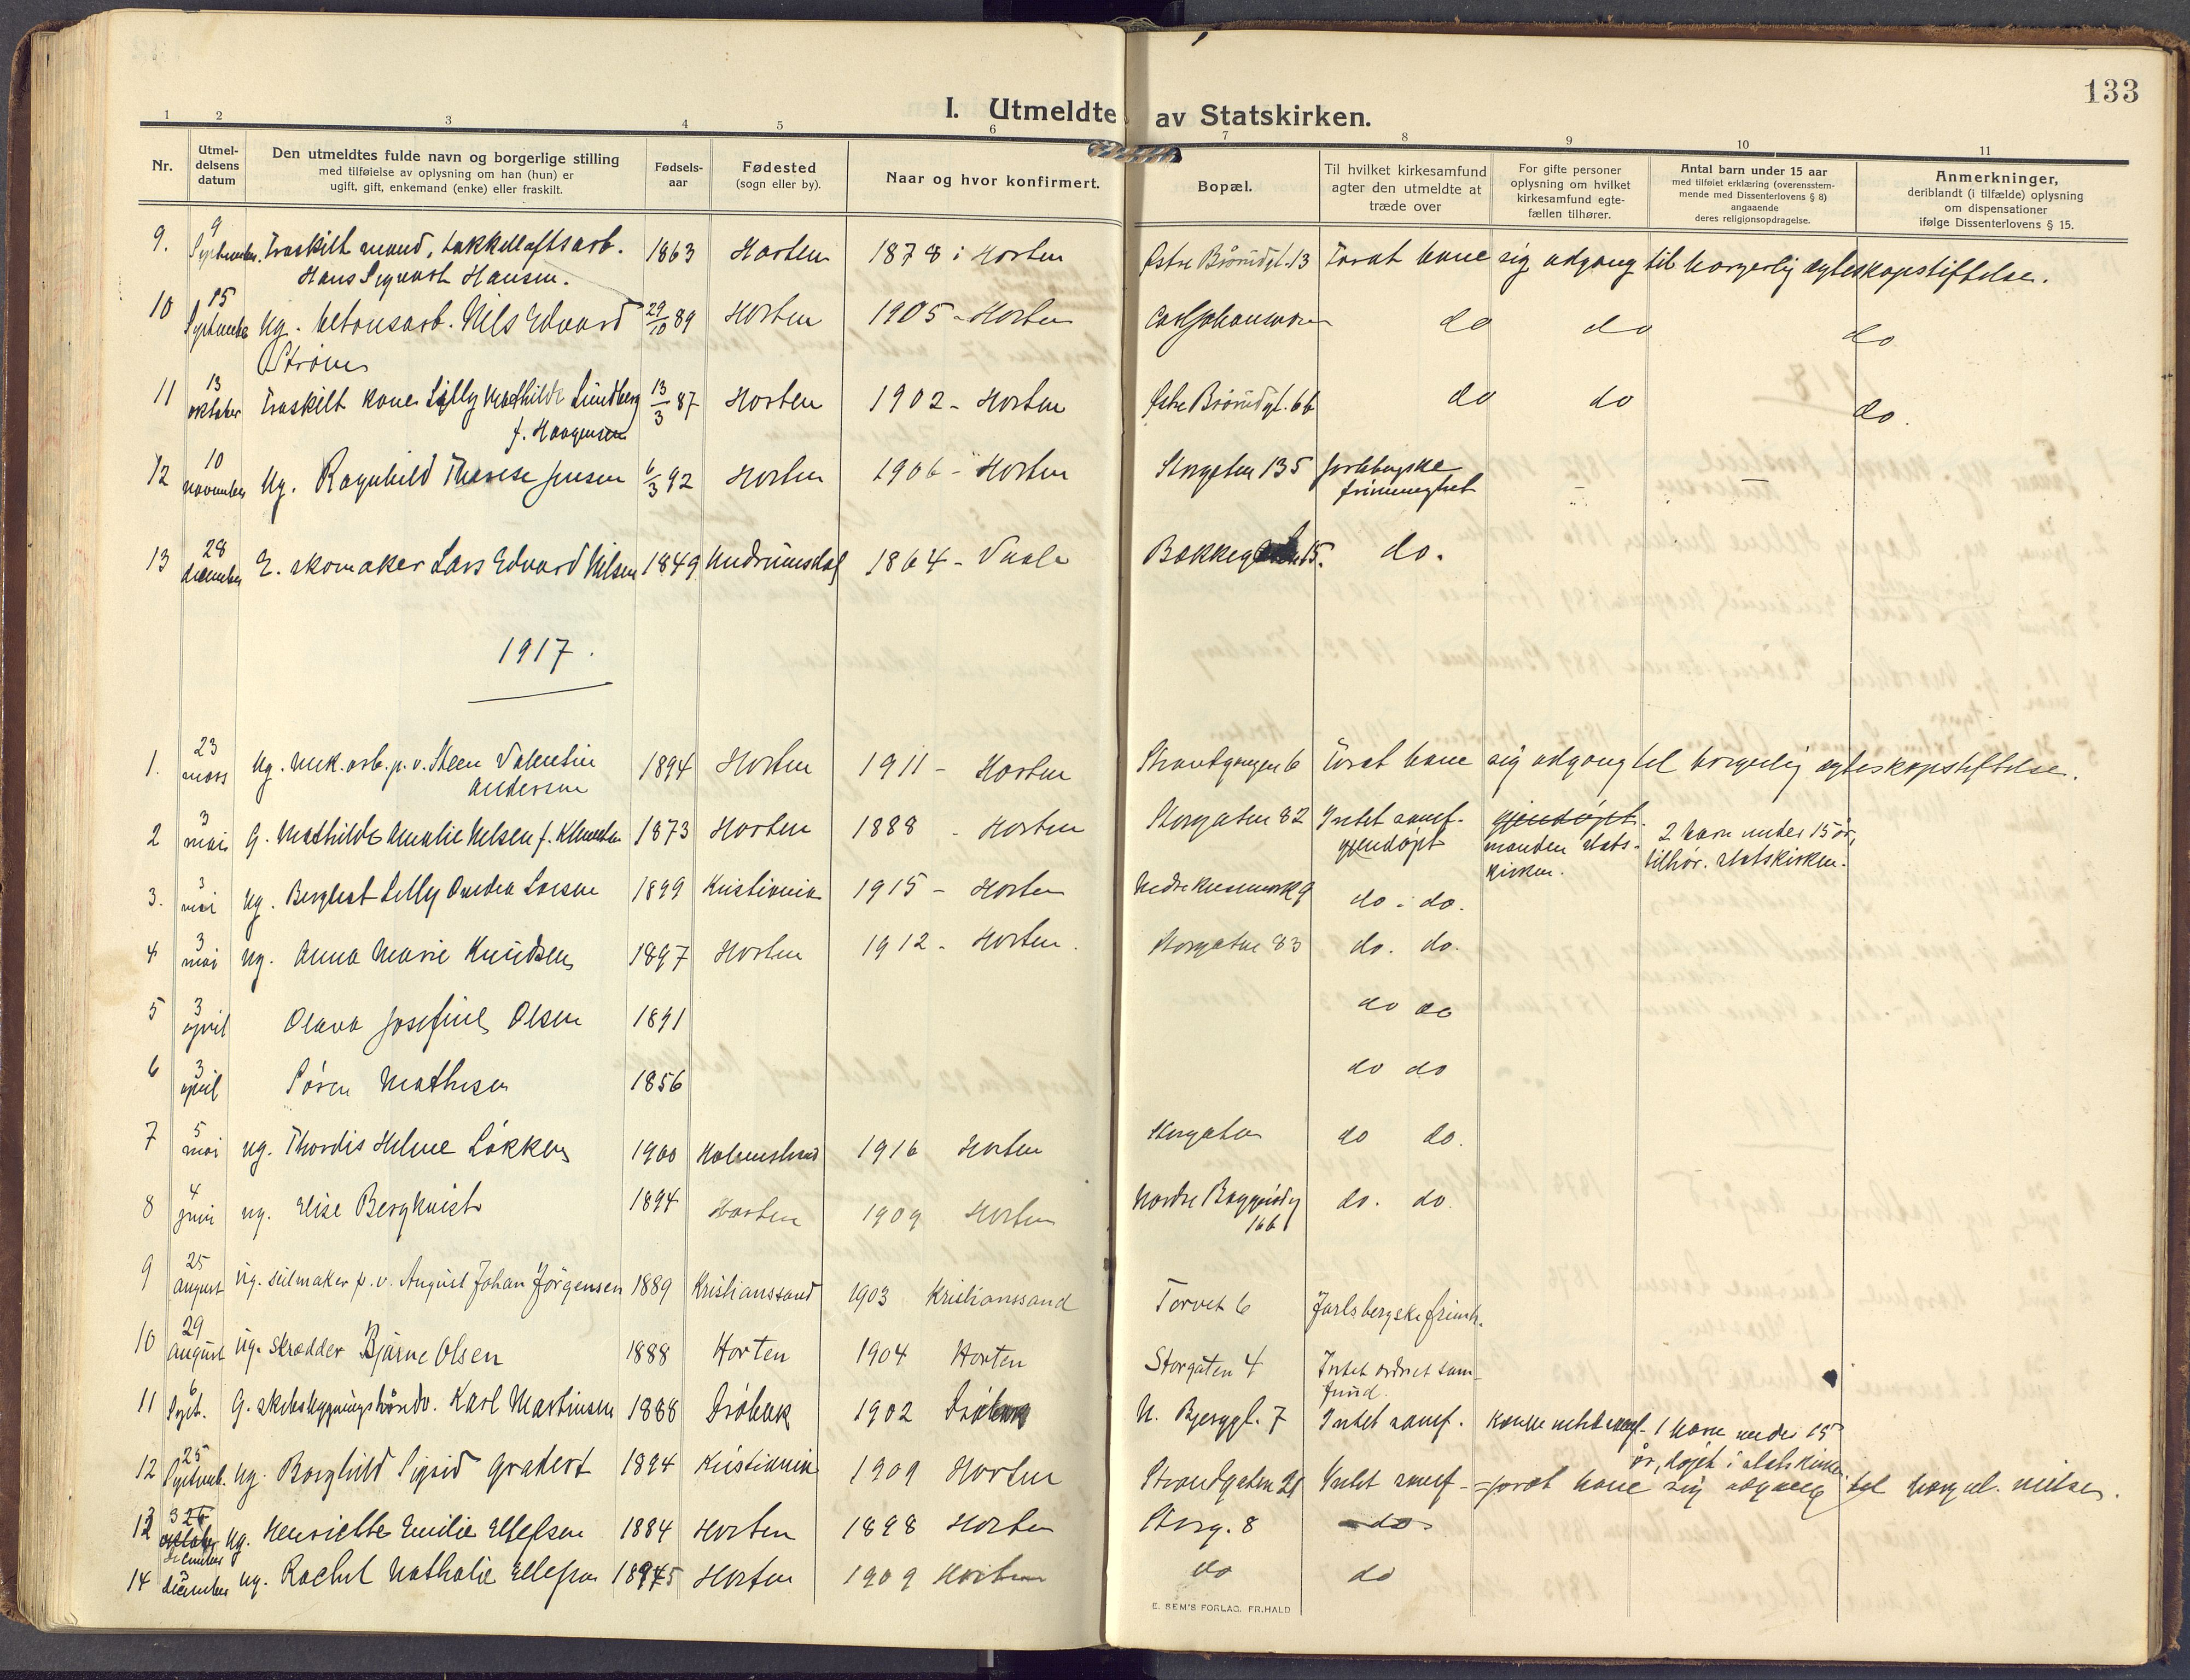 133
I. Utmeldte av Statskirken.
1 2 3 4 5 6 7 8 9 10 11
Nr.
Utmel-
delsens
datum
Den utmeldtes fulde navn og borgerlige stilling
med tilføielse av oplysning om han (hun) er
ugift, gift, enkemand (enke) eller fraskilt.
Fødsels-
aar
Fødested
(sogn eller by).
Naar og hvor konfirmert.
Bopæl.
Til hvilket kirkesamfund
agter den utmeldte at
træde over
For gifte personer
oplysning om hvilket
kirkesamfund egte-
fællen tilhører.
Antal barn under 15 aar
med tilføiet erklæring (overensstem-
mende med Dissenterlovens § 8)
angaaende
deres religionsopdragelse.
Anmerkninger,
deriblandt (i tilfælde) oplysning
om dispensationer
ifølge Dissenterlovens § 15.
9. 9 September. Fraskilt mand, takkelloftsarb. 1863 Horten 1878 i Horten Østre Brårudgt. 13 For at have sig adgang til borgerlig ægteskapsstiftelse.
Hans Sigvart Hansen.
10 15 September Ug. betonsarb. Nils Edvard 29/10 89 Horten 1905 - Horten do do do
Strøm
11 13 oktober Fraskilt kone Lilly Mathilde Lundberg 13/3 87 Horten 1902 - Horten Østre Brårudgt. 66 do do do.
f. Haagensen
12 10 november Ug. Ragnhild Therese Jensen 6/3 92 Horten 1906 - Horten Storgaten 135 Jarlsbergske
frimenighet - -
13 28 december E. skomaker Lars Edvard Nilsen 1849 Undrumsdal 1864 - Vaale Bakkegaten 15. do.
1917.
1. 23 mars Ug. mek. arb. p. v. Steen Valentin 1894 Horten 1911 - Horten Strandgangen 6 For at have sig adgang til borgerlig ægteskapsstiftelse.
Andersen
2 3 mai G. Mathilde Amalie Nilsen f. 1873 Horten 1888 - Horten Storgaten 82 Intet samf. gjendøpt. 2 barn under 15 år,
gjendøpt manden stats- tilhør. statskirken.
kirken.
3. 3 mai ug. Bergliot Lilly Amdea Larsen 1899 Kristiania 1915 - Horten Nedre 9 do. do.
4 3 mai ug. Anna Marie Knudsen 1897 Horten 1912 - Horten. Storgaten 83 do. do.
5 3 april Olava Josefine Olsen 1891 do do
6 3 april Søren Mathisen 1856 do do
7 5 mai ug. Thordis Helene Løkken 1900 Holmestrand 1916 Horten Storgaten do do.
8 4 juni ug. Elise Bergkvist 1894 Horten 1909 Horten Nordre do. do.
16 b
9 25 august Ug. seilmaker p. v. August Johan Jørgensen 1889 Kristianssand 1903 Kristianssand Torvet 6 Jarlsbergske frimh.
10 29 august Ug. skrædder Bjarne Olsen 1888 Horten 1904 Horten Storgaten 4 Intet ordnet sam-
fund.
11 6 Sept. G. skibsbygningshåndv. Karl Martinsen 1888 Drøbak 1902 Drøbak N. Bjerggt. 7 Intet samf. konen intet samf. 1 barn under 15
år, døpt i statskirken.
12 25 Septemb. ug. Borghild Sigrid Gradert 1894 Kristiania 1909 Horten Strandgaten 21 Intet samf - for at have sig adgang til borgerl. vielse.
13 3 oktober december ug. Henriette Emilie Ellefsen 1884 Horten 1898 Horten Storg. 8 do
14 3 december ug. Rachel Nathalie Ellefsen 1895 Horten 1909 Horten do do
E. SEM'S FORLAG. FR.HALD